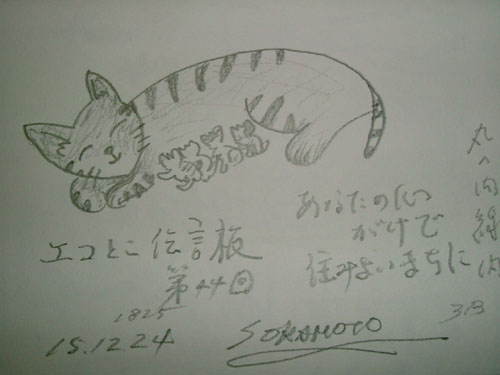 エコとこ伝言板
第44回
1825
15.12.24
あなたの心
がけで
住みよいまちに
丸の内線内
313
SOKAMOTO